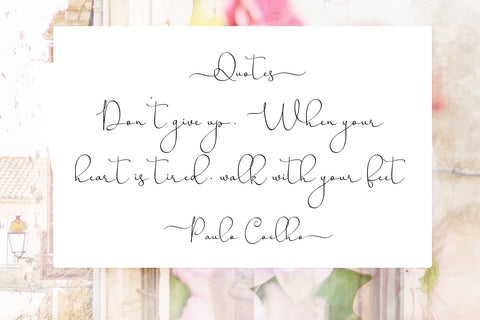 Quotes
Don't give up. When your
heart is tired. walk with your feet
Paulo Coelho